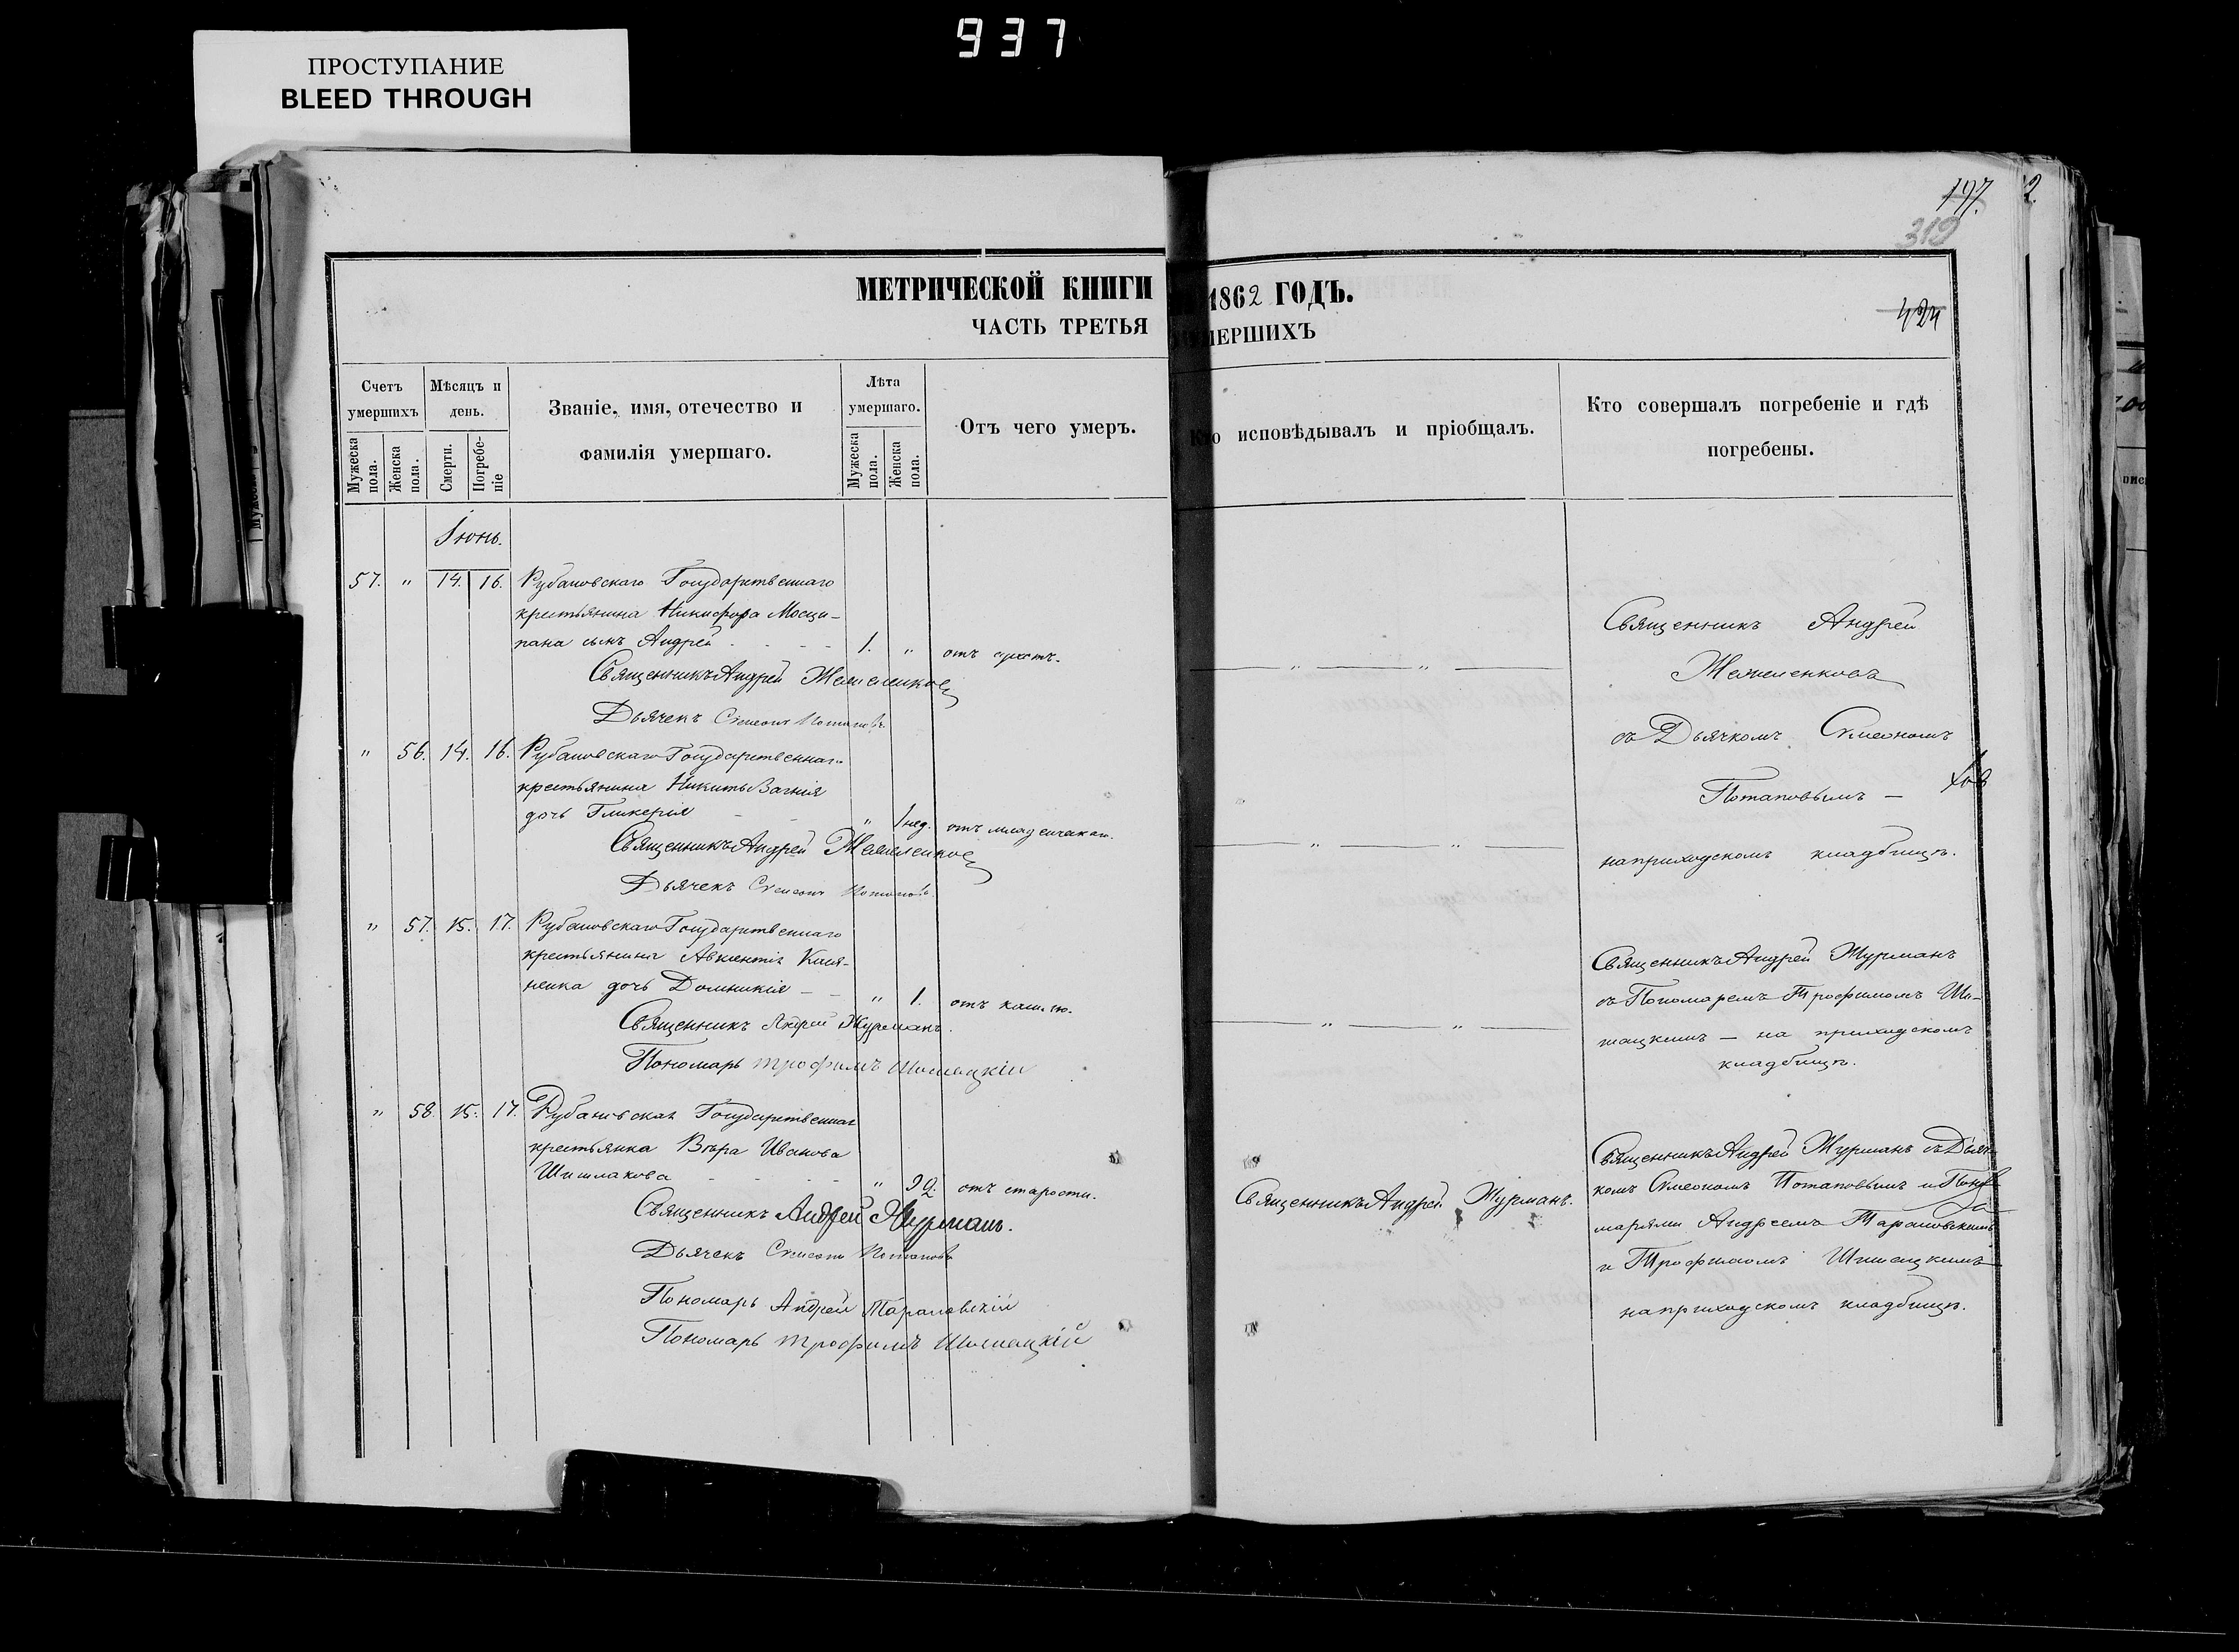 937
ПРОСТУПАНИЕ
BLEED THROUGH
197. 2.
319
МЕТРИЧЕСКОЙ КНИГИ 1862 ГОДЪ.
424
ЧАСТЬ ТРЕТЬЯ УМЕРШИХЪ
Счетъ умершихъ
Мѣсяцъ и день.
Званіе, имя, отечество и фамилія умершаго.
Лѣта умершаго.
Отъ чего умеръ.
Кто исповѣдывалъ и пріобщалъ.
Кто совершалъ погребеніе и гдѣ погребены.
Мужеска пола.
Женска пола.
Смерти.
Погребеніе
Мужеска пола.
Женска пола.
Іюнь.
57. " 14. 16. Рубановскаго Государственнаго
крестьянина Никифора Мосци-
пана сынъ Андрей 1. "
Священникъ Андрей
Дьячекъ Симеонъ Потаповъ
Священникъ Андрей
съ Дьячкомъ Симеономъ
Потаповымъ —
на приходскомъ кладбищѣ.
" 56. 14. 16. Рубановскаго Государственнаго
крестьянина Никиты
дочь Гликерія " 1 нед. отъ
Священникъ Андрей
Дьячекъ Симеонъ Потаповъ
" 57. 15. 17. Рубановскаго Государственнаго
крестьянина Авксентія Кася-
ненка дочь Домникія — " 1. отъ кашлю.
Священникъ Андрей Журманъ.
Пономарь Трофимъ Шишацкій
Священникъ Андрей Журманъ
съ Пономаремъ Трофимомъ Ши-
шацкимъ — на приходскомъ
кладбищѣ.
" 58. 15. 17. Рубановская Государственная
крестьянка Вѣра Иванова
Шишлакова " 92. отъ старости.
Священникъ Андрей Журманъ.
Дьячекъ Симеонъ Потаповъ
Пономарь Андрей Тарановскій
Пономарь Трофимъ Шишацкій
Священникъ Андрей Журманъ.
Священникъ Андрей Журманъ съ Дьяч-
комъ Симеономъ Потаповымъ и Поно-
марями Андреемъ Тарановскимъ
и Трофимомъ Шишацкимъ
на приходскомъ кладбищѣ.